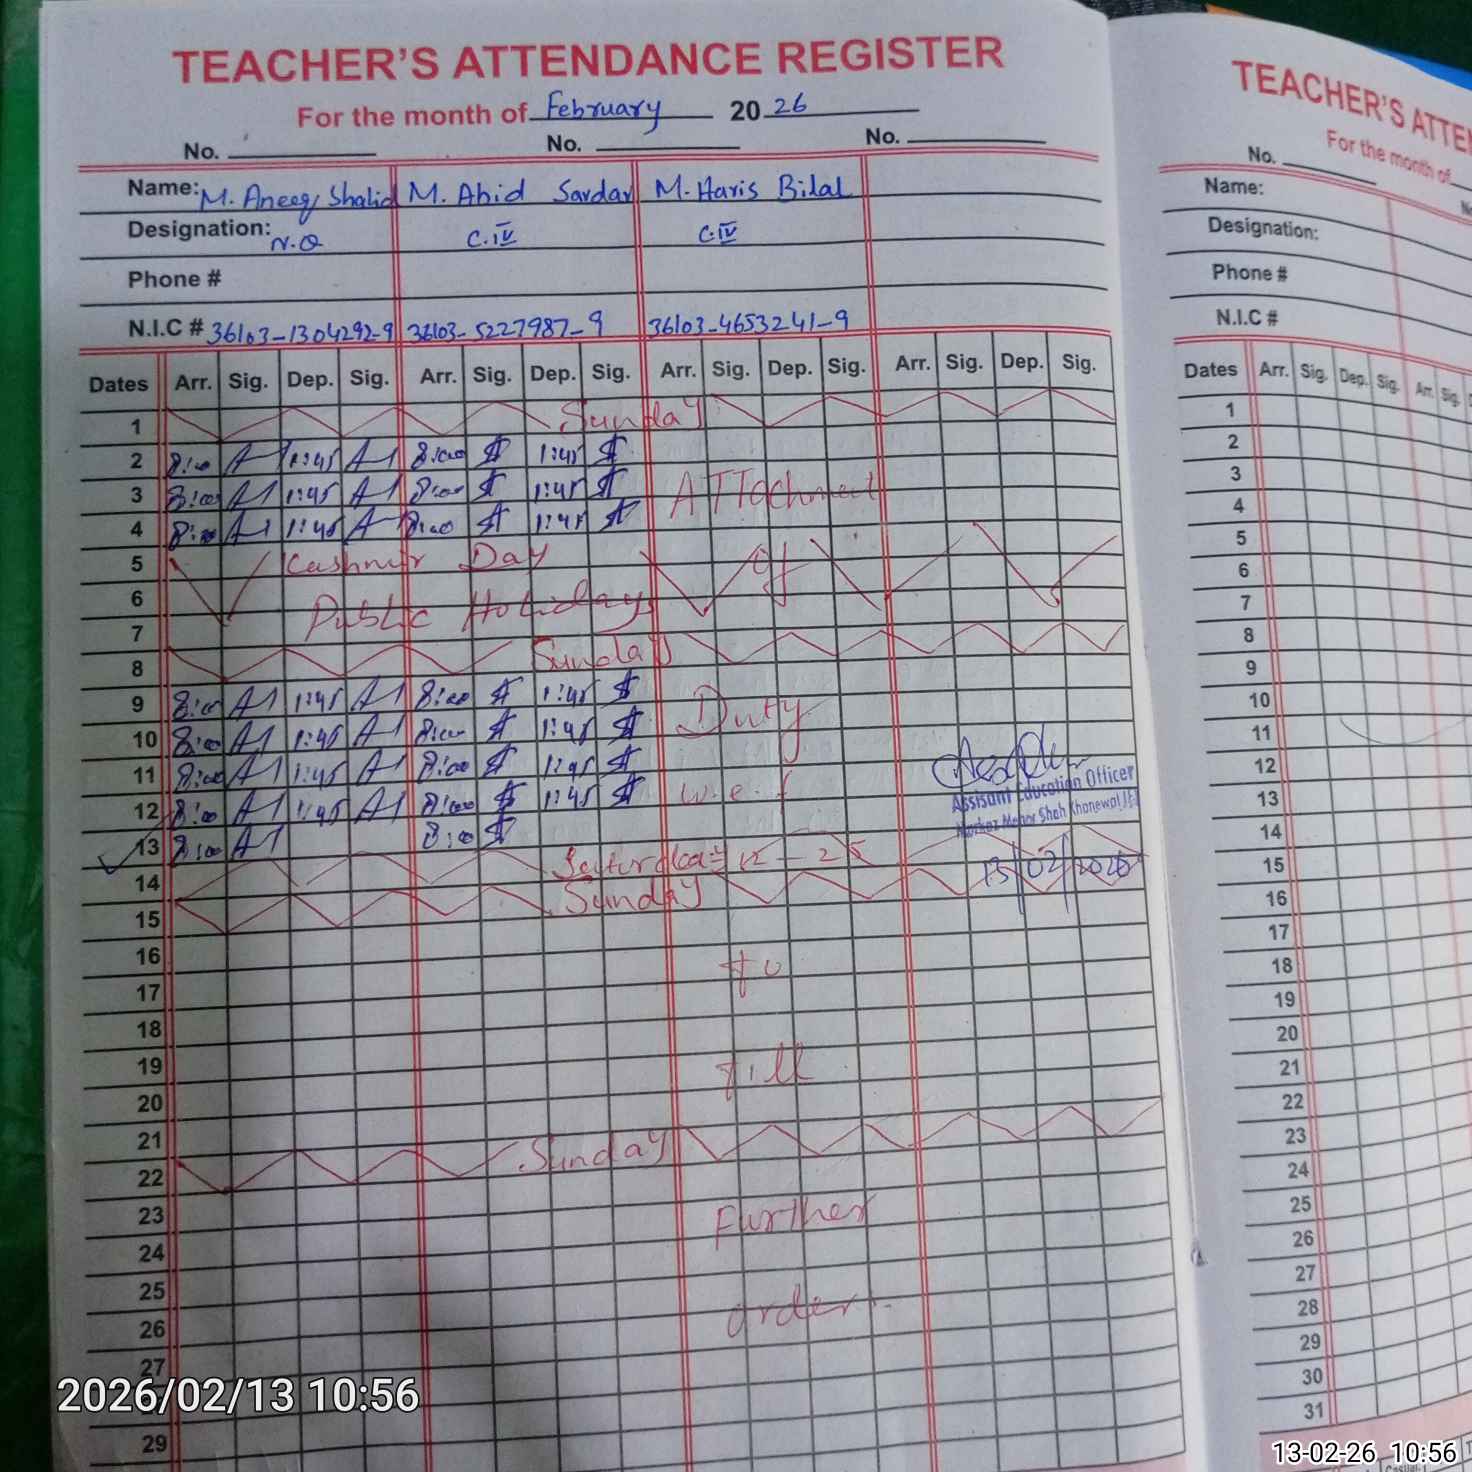 TEACHER'S ATTENDANCE REGISTER
For the month of February 2026
No. No. No.
Name: M. Aneeq Shalid M. Abid Sardar M. Haris Bilal
Designation: N.Q C.IV C.IV
Phone #
N.I.C # 36103-1304292-9 36103-5227987-9 36103-4653241-9
Dates Arr. Sig. Dep. Sig. Arr. Sig. Dep. Sig. Arr. Sig. Dep. Sig. Arr. Sig. Dep. Sig.
1 Sunday
2 8:00 1:45 8:00 1:45
3 8:00 1:45 8:00 1:45 ATTachment
4 8:00 1:45 8:00 1:45
5 Cashmir Day of
6 Public Holiday
7
8 Sunday
9 8:00 1:45 8:00 1:45 Duty
10 8:00 1:45 8:00 1:45
11 8:00 1:45 8:00 1:45
12 8:00 1:45 8:00 1:45 w.e.f
Assisant Education Officer
Markaz Mehar Shah Khanewal
13 8:00 8:00
14 Saturday 12-25 13/02/2026
15 Sunday
16
17 to
18
19
20 till
21
22 Sunday
23
24 Further
25
26 order.
27
29
2026/02/13 10:56
TEACHER'S ATTE
For the month of
No.
Name:
Designation:
Phone #
N.I.C #
Dates Arr. Sig. Dep. Sig. Arr. Sig.
1
2
3
4
5
6
7
8
9
10
11
12
13
14
15
16
17
18
19
20
21
22
23
24
25
26
27
28
29
30
31
13-02-26 10:56